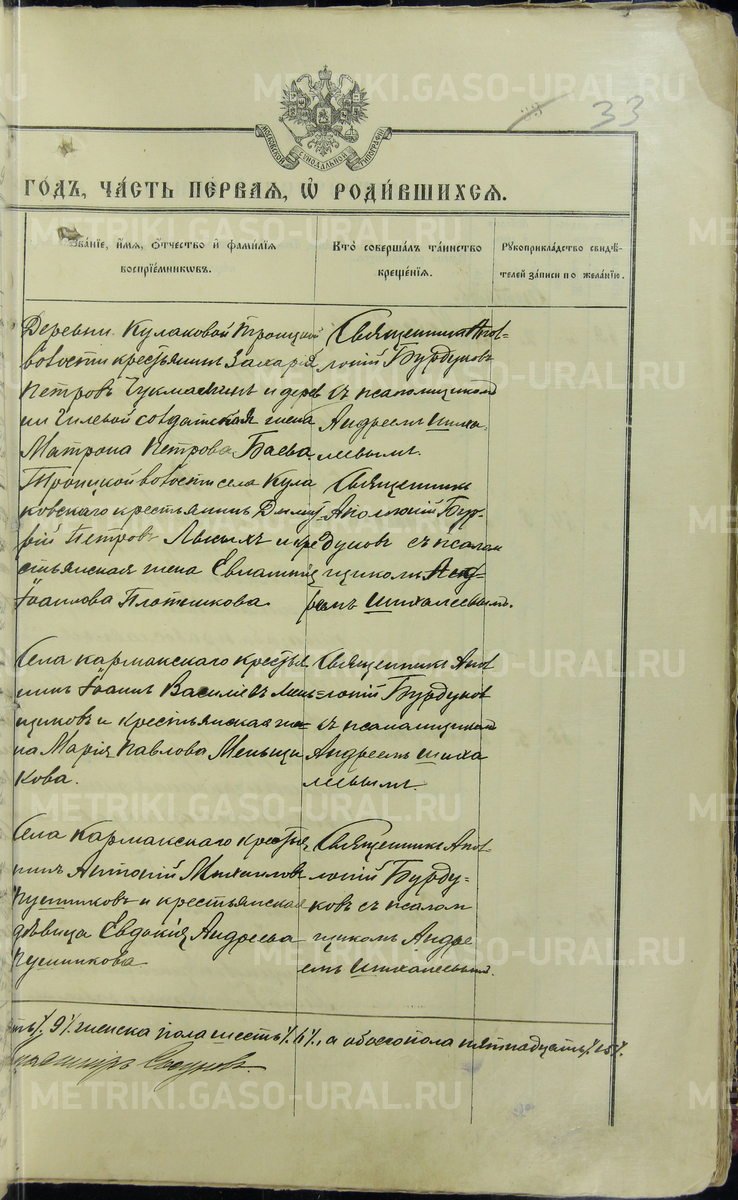 33
МОСКОВСКОЙ СѴНОДАЛЬНОЙ ТИПОГРАФІИ
ГОДЪ, ЧАСТЬ ПЕРВАЯ, Ѡ РОДИВШИХСЯ.
Званіе, имя, отчество и фамилія
воспріемниковъ.
Кто совершалъ таинство
крещенія.
Рукоприкладство свидѣ-
телей записи по желанію.
Деревни Кулаковой Троицкой
волости крестьянинъ Захарія
Петровъ и дерев
ни солдатская жена
Матрона Петрова Баева.
Священникъ Апол-
лоній Бурдуковъ
съ псаломщикомъ
Андреемъ Шиха
левымъ.
Троицкой волости села Кула
ковскаго крестьянинъ Дими
трій Петровъ Лысыхъ и кре
стьянская жена Евлампія
Іоаннова Плотникова
Священникъ
Аполлоній Бур-
дуковъ съ псалом
щикомъ Анд-
реемъ Шихалевымъ.
Села Кармакскаго крестья
нинъ Іоаннъ Васильевъ Мень-
щиковъ и крестьянская же-
на Марія Павлова Меньщи
кова.
Священникъ Апол
лоній Бурдуков
съ псаломщикомъ
Андреемъ Шиха
левымъ.
Села Кармакскаго крестья
нинъ Антоній Михаиловъ
Пушниковъ и крестьянская
дѣвица Евдокія Андреева
Пушникова
Священникъ Апол
лоній Бурду-
ковъ съ псалом
щикомъ Андре
емъ Шихалевымъ.
9 женска пола шесть 6, а обоего пола пятнадцать 15
METRIKI.GASO-URAL.RU